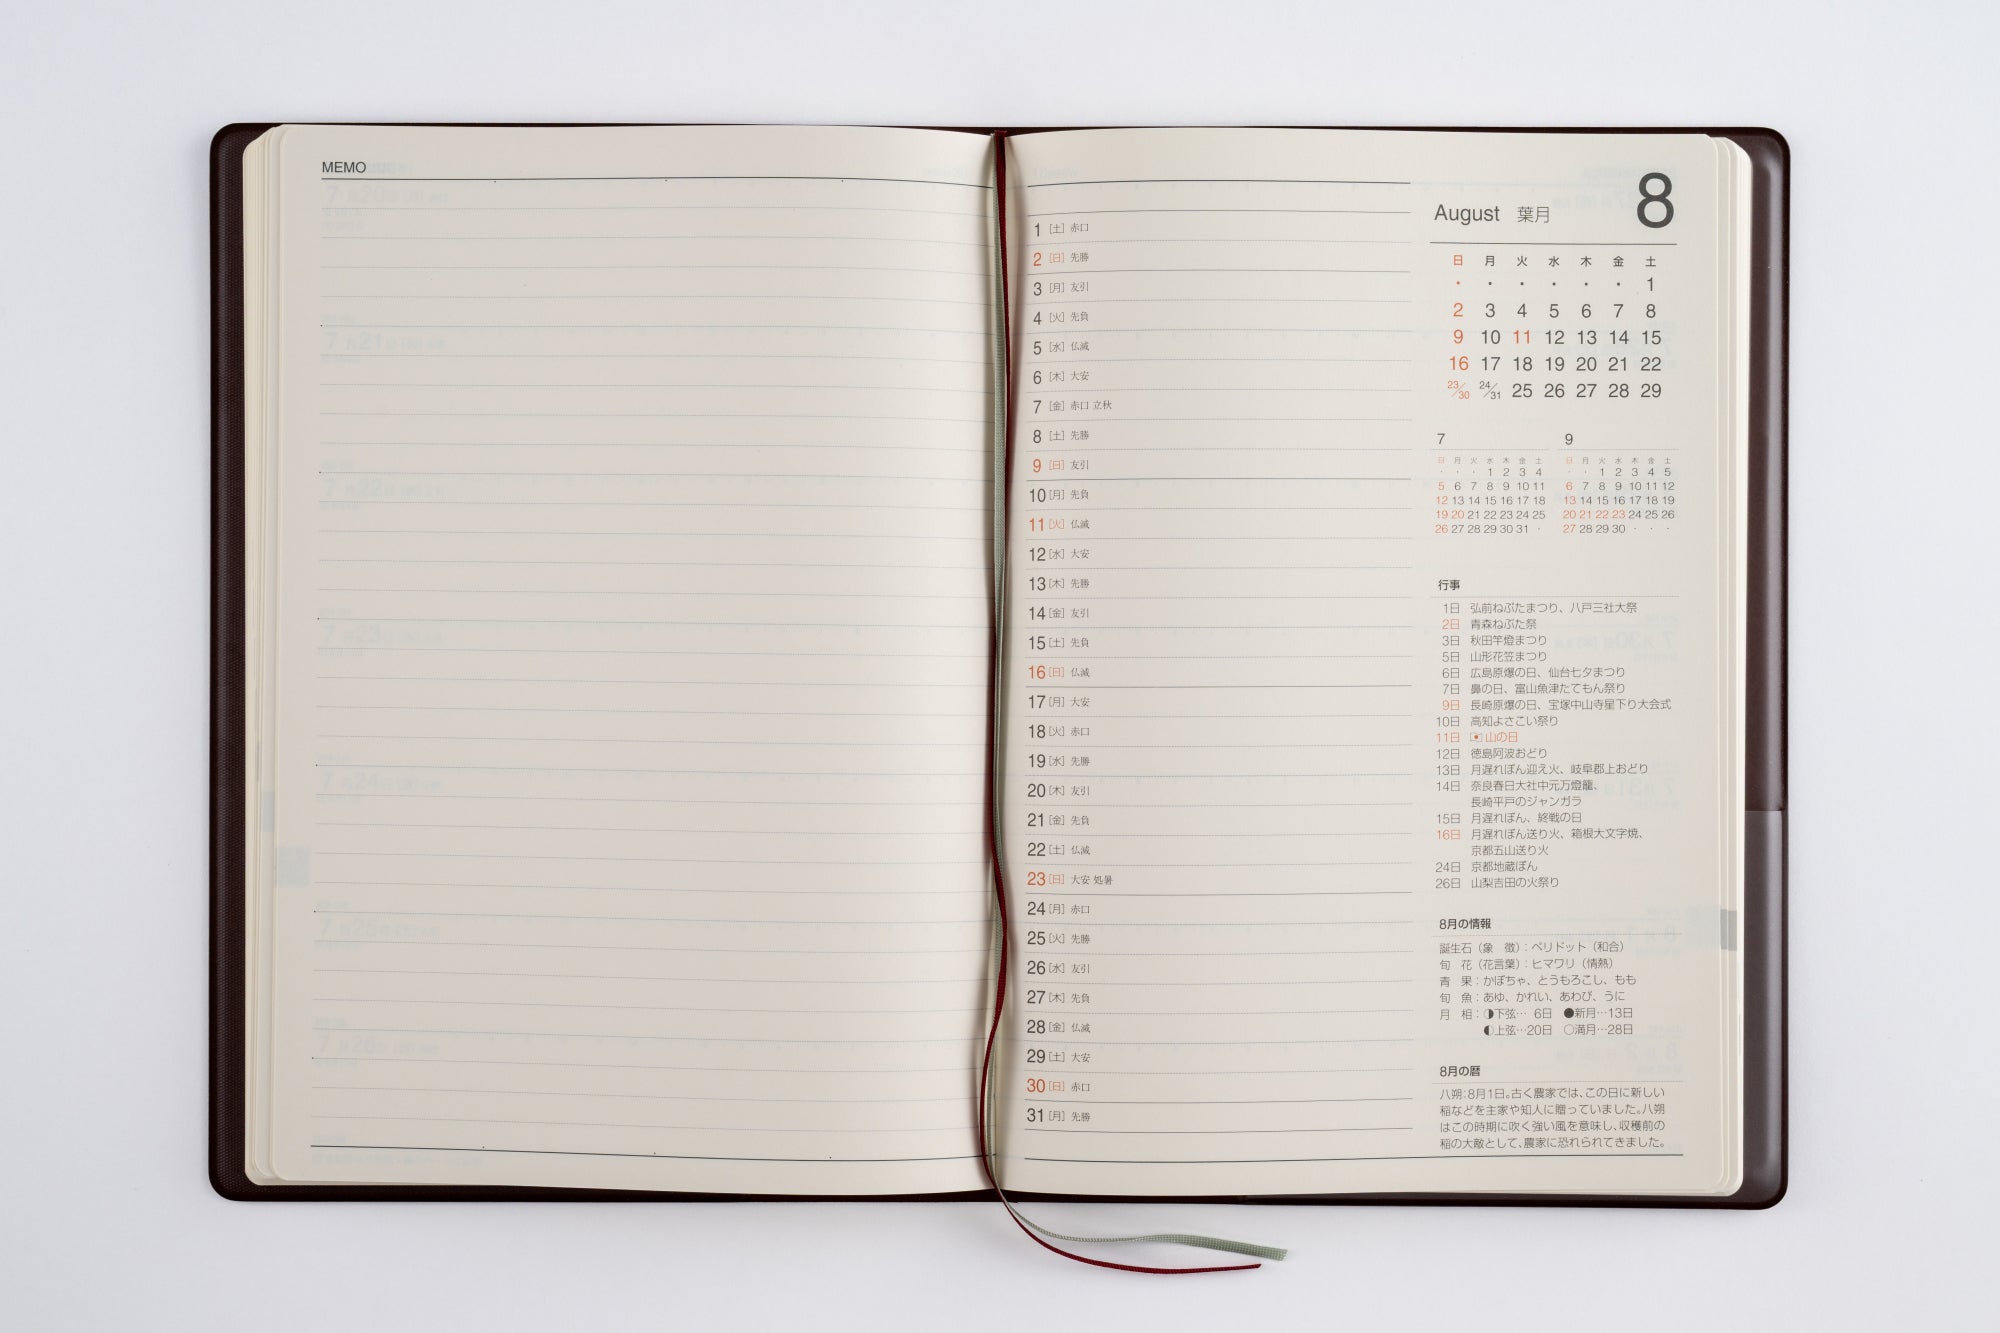 MEMO
1 [土] 赤口
2 [日] 先勝
3 [月] 友引
4 [火] 先負
5 [水] 仏滅
6 [木] 大安
7 [金] 赤口 立秋
8 [土] 先勝
9 [日] 友引
10 [月] 先負
11 [火] 仏滅
12 [水] 大安
13 [木] 先勝
14 [金] 友引
15 [土] 先負
16 [日] 仏滅
17 [月] 大安
18 [火] 赤口
19 [水] 先勝
20 [木] 友引
21 [金] 先負
22 [土] 仏滅
23 [日] 大安 処暑
24 [月] 赤口
25 [火] 先勝
26 [水] 友引
27 [木] 先負
28 [金] 仏滅
29 [土] 大安
30 [日] 赤口
31 [月] 先勝
August 葉月 8
日 月 火 水 木 金 土
・ ・ ・ ・ ・ ・ 1
2 3 4 5 6 7 8
9 10 11 12 13 14 15
16 17 18 19 20 21 22
23/30 24/31 25 26 27 28 29
7
日 月 火 水 木 金 土
・ ・ ・ 1 2 3 4
5 6 7 8 9 10 11
12 13 14 15 16 17 18
19 20 21 22 23 24 25
26 27 28 29 30 31 ・
9
日 月 火 水 木 金 土
・ ・ 1 2 3 4 5
6 7 8 9 10 11 12
13 14 15 16 17 18 19
20 21 22 23 24 25 26
27 28 29 30 ・ ・ ・
行事
1日 弘前ねぷたまつり、八戸三社大祭
2日 青森ねぶた祭
3日 秋田竿燈まつり
5日 山形花笠まつり
6日 広島原爆の日、仙台七夕まつり
7日 鼻の日、富山魚津たてもん祭り
9日 長崎原爆の日、宝塚中山寺星下り大会式
10日 高知よさこい祭り
11日 山の日
12日 徳島阿波おどり
13日 月遅れぼん迎え火、岐阜郡上おどり
14日 奈良春日大社中元万燈籠、
長崎平戸のジャンガラ
15日 月遅れぼん、終戦の日
16日 月遅れぼん送り火、箱根大文字焼、
京都五山送り火
24日 京都地蔵ぼん
26日 山梨吉田の火祭り
8月の情報
誕生石（象 徴）：ペリドット（和合）
旬 花（花言葉）：ヒマワリ（情熱）
青 果：かぼちゃ、とうもろこし、もも
旬 魚：あゆ、かれい、あわび、うに
月 相：◑下弦… 6日 ●新月…13日
◐上弦…20日 ○満月…28日
8月の暦
八朔：8月1日。古く農家では、この日に新しい
稲などを主家や知人に贈っていました。八朔
はこの時期に吹く強い風を意味し、収穫前の
稲の大敵として、農家に恐れられてきました。